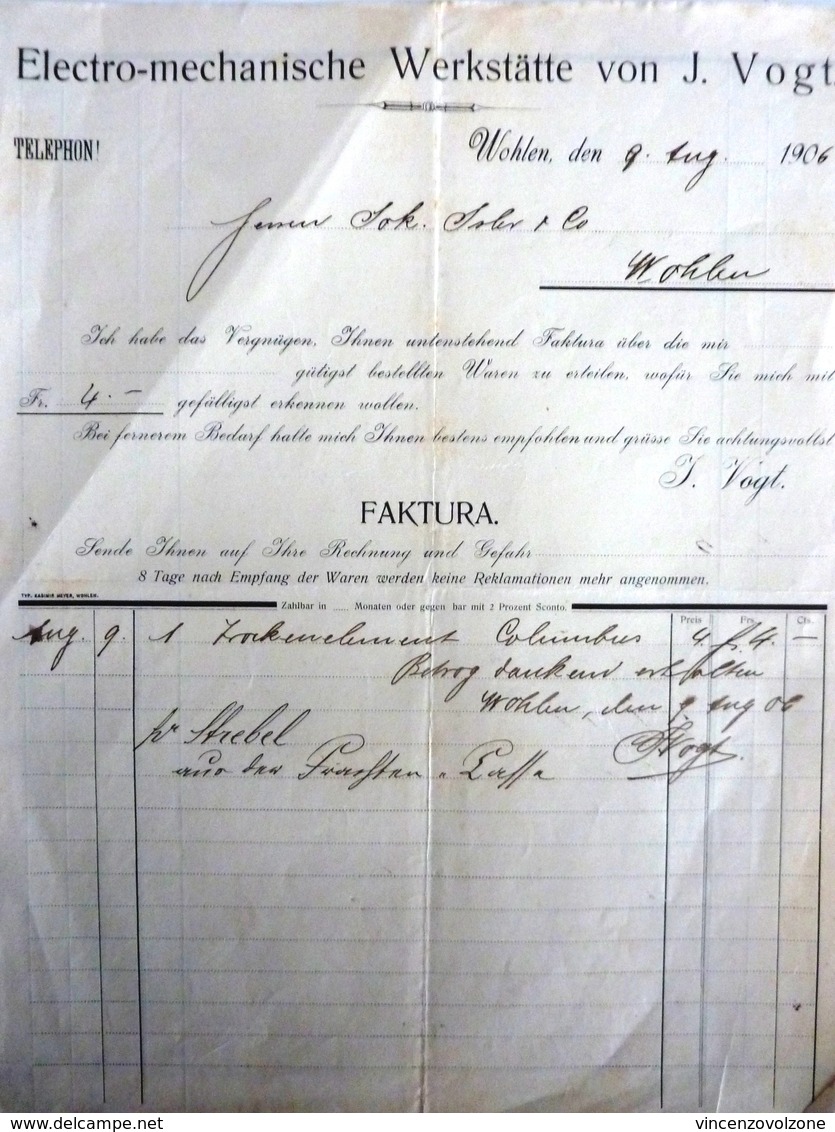 Electro-mechanische Werkstätte von J. Vogt.
TELEPHON!
Wohlen, den 9. Aug. 1906
Herren Jok. Isler & Co
Wohlen
Ich habe das Vergnügen, Ihnen untenstehend Faktura über die mir
gütigst bestellten Waren zu erteilen, wofür Sie mich mit
Fr. 4.- gefälligst erkennen wollen.
Bei fernerem Bedarf halte mich Ihnen bestens empfohlen und grüsse Sie achtungsvollst
J. Vogt.
FAKTURA.
Sende Ihnen auf Ihre Rechnung und Gefahr
8 Tage nach Empfang der Waren werden keine Reklamationen mehr angenommen.
TYP. KASIMIR MEYER, WOHLEN.
Zahlbar in ...... Monaten oder gegen bar mit 2 Prozent Sconto.
Preis Frs. Cts.
Aug. 9. 1 Trockenelement Columbus 4. fr. 4. -
Betrag dankend erhalten
Wohlen, den 9 Aug 06
pr Strebel JVogt.
aus der Frachten-Cassa
delcampe.net
vincenzovolzone